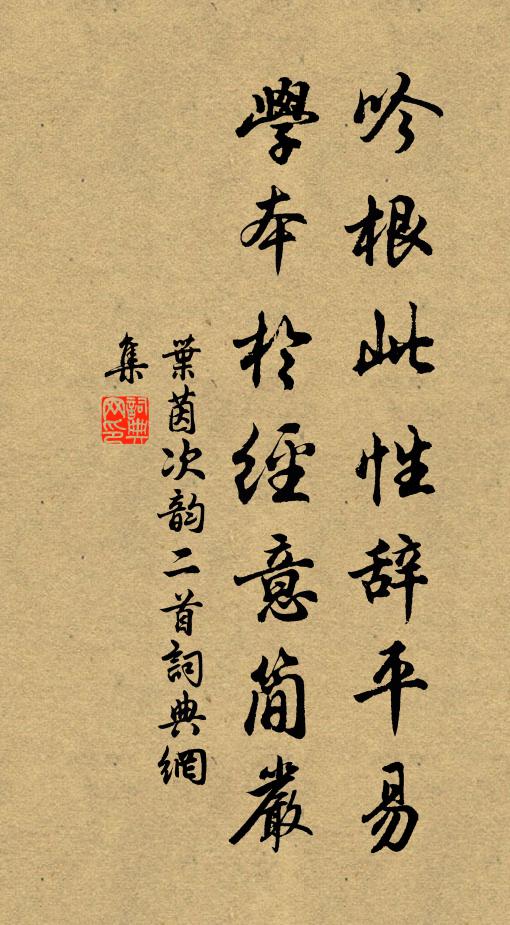 吟根此性辞平易
學本於經意简嚴
葉茵次韵二首詞典網
集
詞典
网印